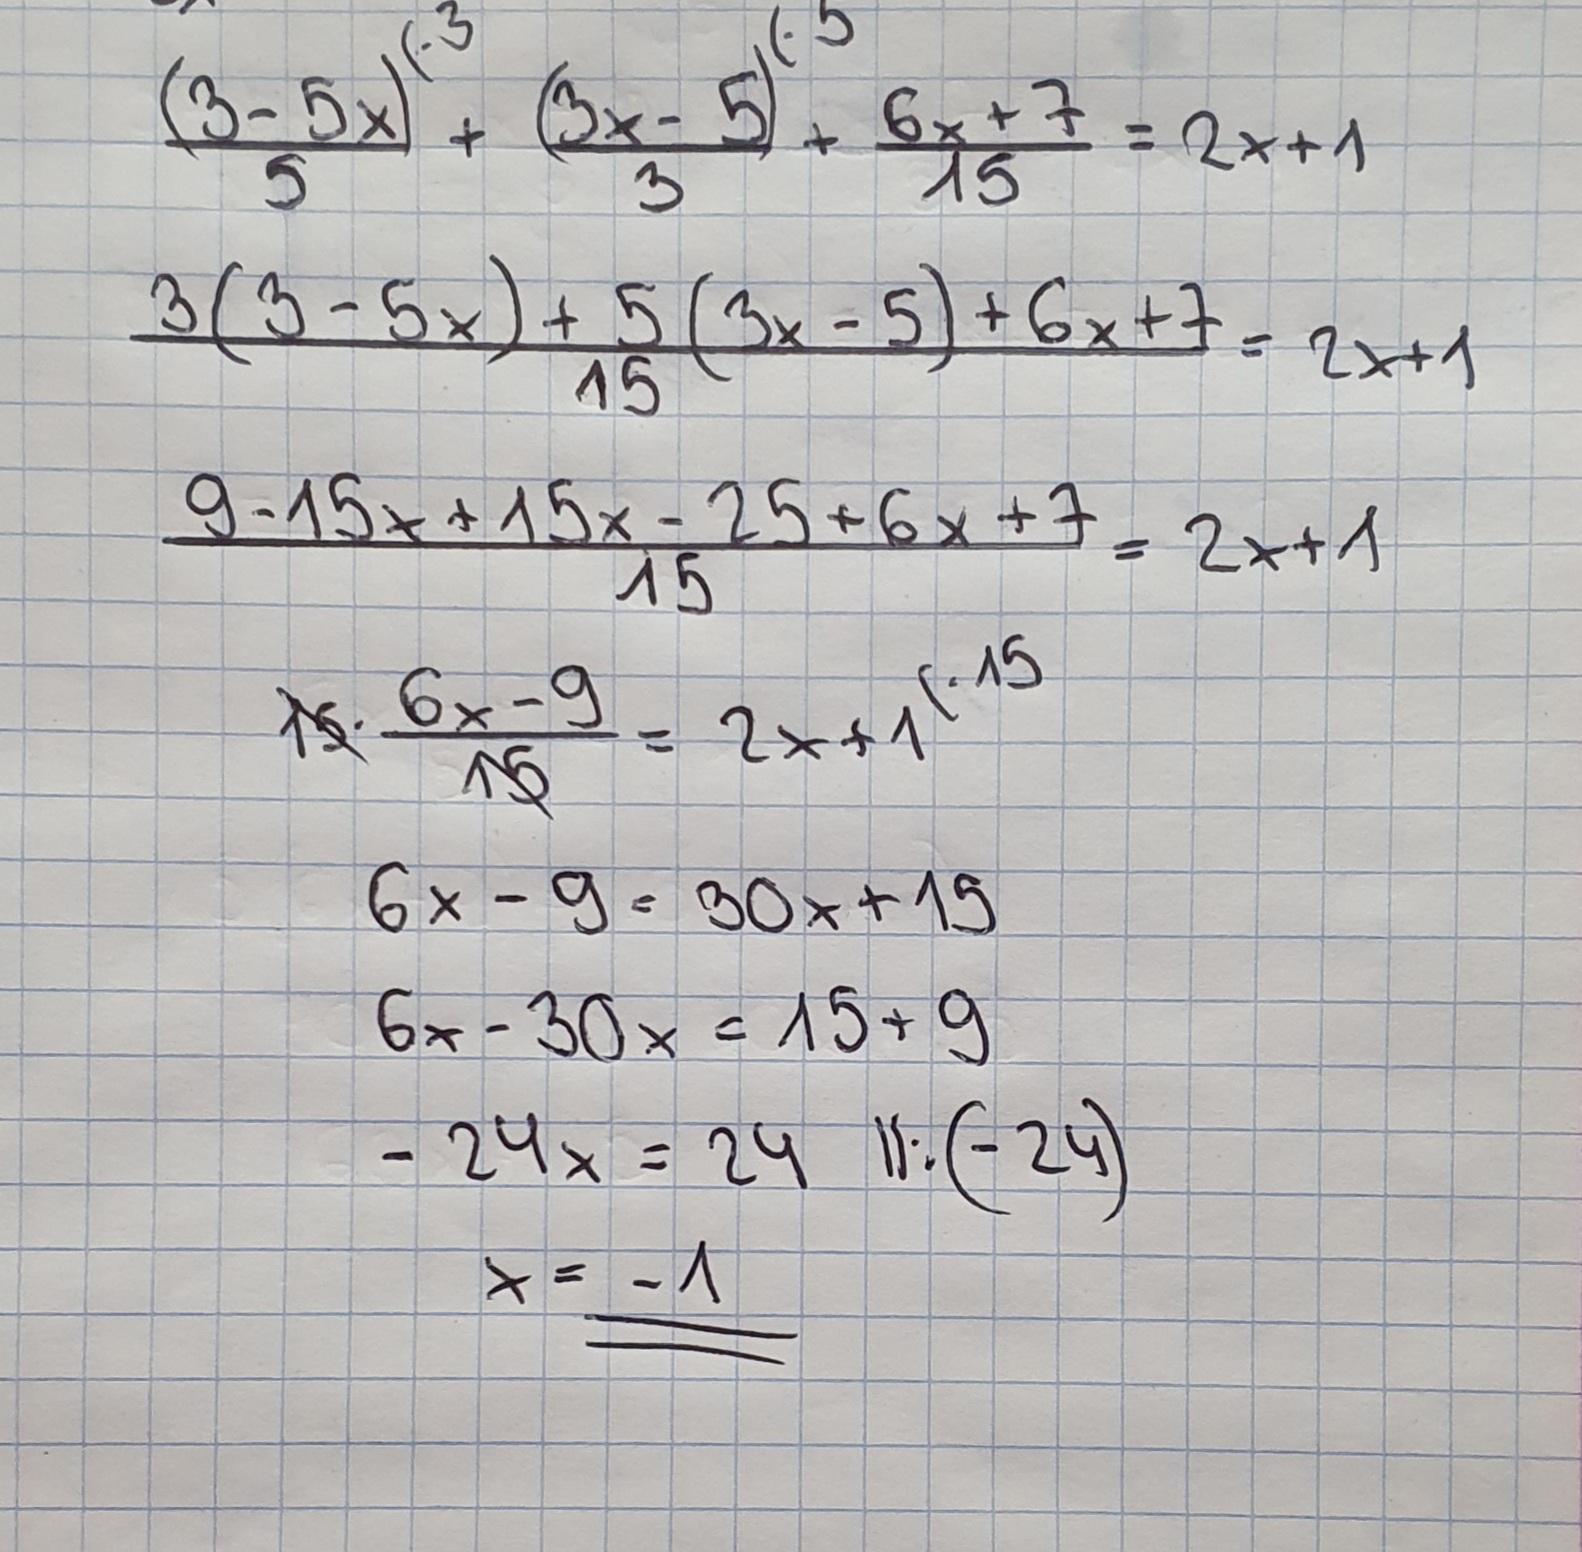 (3-5x)/5 (·3 + (3x-5)/3 (·5 + (6x+7)/15 = 2x+1
(3(3-5x)+5(3x-5)+6x+7)/15 = 2x+1
(9-15x+15x-25+6x+7)/15 = 2x+1
15· (6x-9)/15 = 2x+1 (·15
6x-9=30x+15
6x-30x=15+9
-24x=24 ||:(-24)
x=-1